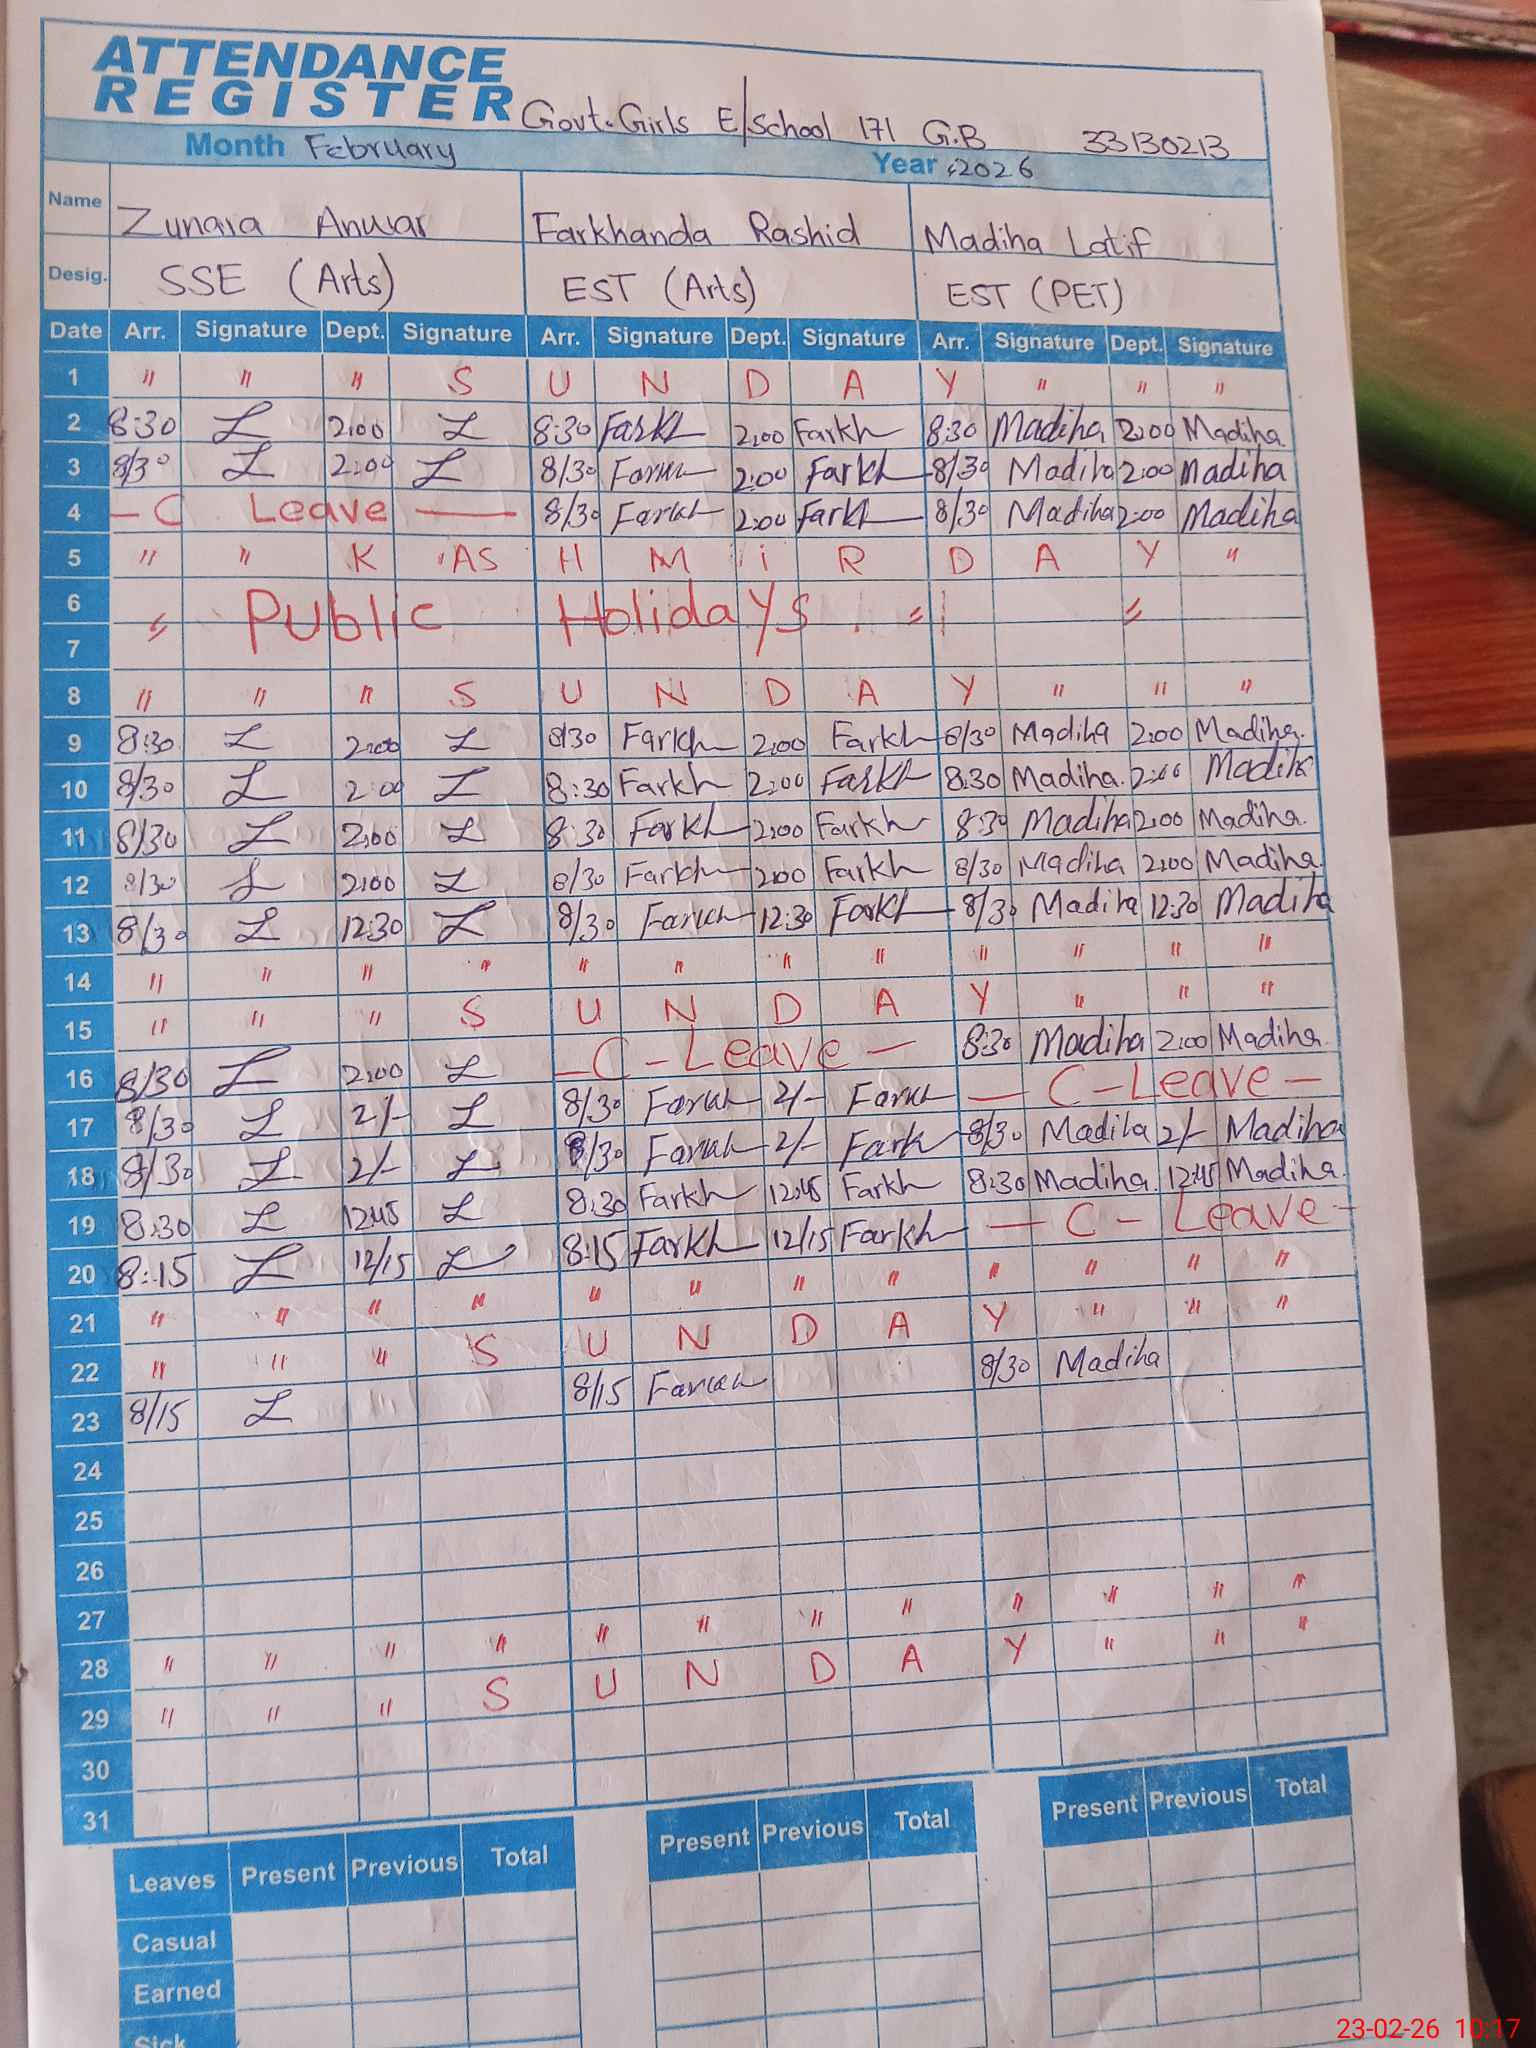 ATTENDANCE
REGISTER Govt. Girls E/School 171 G.B 33130213
Month February Year 2026
Name Zunaira Anwar Farkhanda Rashid Madiha Latif
Desig. SSE (Arts) EST (Arts) EST (PET)
Date Arr. Signature Dept. Signature Arr. Signature Dept. Signature Arr. Signature Dept. Signature
1 " " " S U N D A Y " " "
2 8:30 2:00 8:30 Farkh 2:00 Farkh 8:30 Madiha 2:00 Madiha
3 8/30 2:00 8/30 Farkh 2:00 Farkh 8/30 Madiha 2:00 Madiha
4 — C Leave — 8/30 Farkh 2:00 Farkh 8/30 Madiha 2:00 Madiha
5 " " K AS H M i R D A Y "
6 " Public Holidays " "
7
8 " " " S U N D A Y " " "
9 8:30 2:00 8/30 Farkh 2:00 Farkh 8/30 Madiha 2:00 Madiha.
10 8/30 2:00 8:30 Farkh 2:00 Farkh 8:30 Madiha. 2:00 Madiha
11 8/30 2:00 8:30 Farkh 2:00 Farkh 8:30 Madiha 2:00 Madiha.
12 8/30 2:00 8/30 Farkh 2:00 Farkh 8/30 Madiha 2:00 Madiha.
13 8/30 12:30 8/30 Farkh 12:30 Farkh 8/30 Madiha 12:30 Madiha
14 " " " " " " " " " " " "
15 " " " S U N D A Y " " "
16 8/30 2:00 — C - Leave — 8:30 Madiha 2:00 Madiha.
17 8/30 2/- 8/30 Farkh 2/- Farkh — C - Leave —
18 8/30 2/- 8/30 Farkh 2/- Farkh 8/30 Madiha 2/- Madiha
19 8:30 12:45 8:30 Farkh 12:45 Farkh 8:30 Madiha. 12:45 Madiha.
20 8:15 12/15 8:15 Farkh 12/15 Farkh — C - Leave -
21 " " " " " " " " " " " "
22 " " " S U N D A Y " " "
23 8/15 8/15 Farkh 8/30 Madiha
24
25
26
27
28 " " " " " " " " " " " "
29 " " " S U N D A Y " " "
30
31
Leaves Present Previous Total Present Previous Total Present Previous Total
Casual
Earned
Sick
23-02-26 10:17